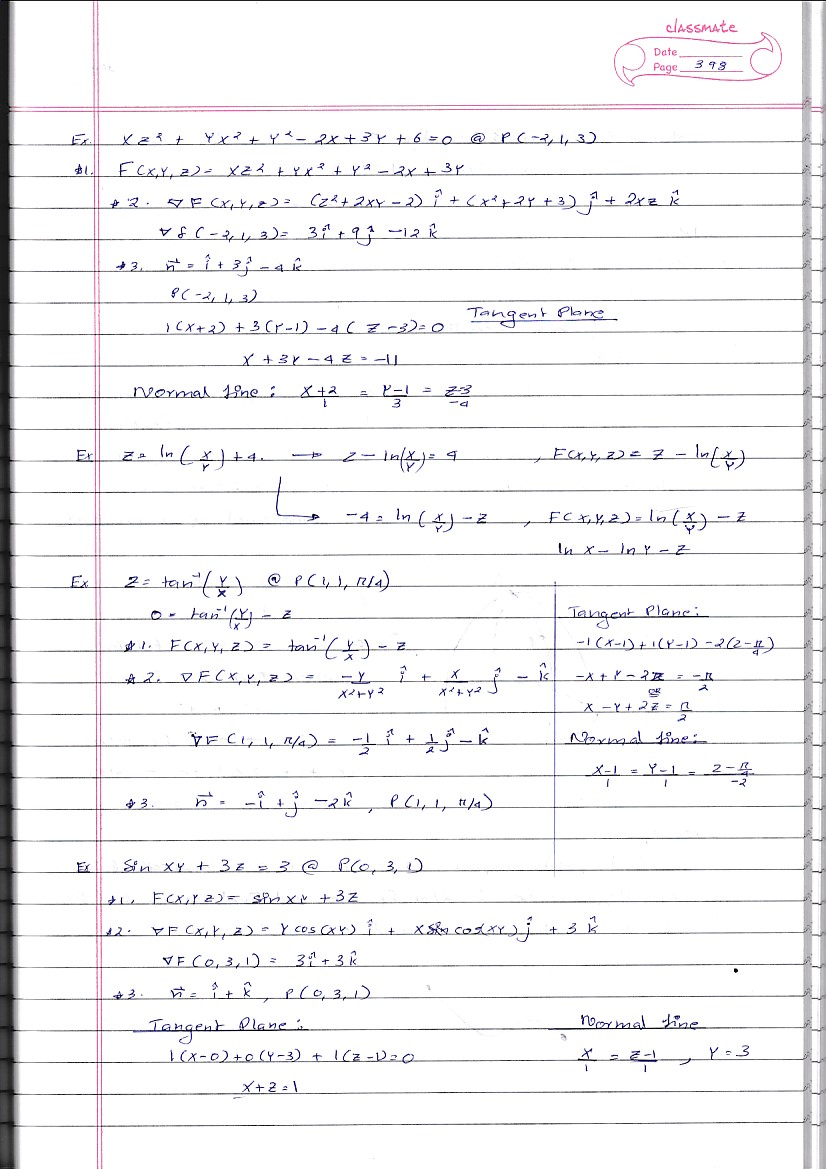 classmate
Date
Page 398
Ex. xz² + yx² + y² - 2x + 3y + 6 = 0 @ P(-2, 1, 3)
#1. F(x, y, z) = xz² + yx² + y² - 2x + 3y
#2. ∇F(x, y, z) = (z² + 2xy - 2) î + (x² + 2y + 3) ĵ + 2xz k̂
∇f(-2, 1, 3) = 3î + 9ĵ - 12k̂
#3. n⃗ = î + 3ĵ - 4k̂
P(-2, 1, 3)
1(x+2) + 3(y-1) - 4(z-3) = 0 Tangent Plane
x + 3y - 4z = -11
Normal line: (x+2)/1 = (y-1)/3 = (z-3)/-4
Ex z = ln(x/y) + 4. → z - ln(x/y) = 4 , F(x, y, z) = z - ln(x/y)
→ -4 = ln(x/y) - z , F(x, y, z) = ln(x/y) - z
ln x - ln y - z
Ex z = tan⁻¹(y/x) @ P(1, 1, π/4)
0 = tan⁻¹(y/x) - z
#1. F(x, y, z) = tan⁻¹(y/x) - z
#2. ∇F(x, y, z) = -y/(x²+y²) î + x/(x²+y²) ĵ - k̂
∇F(1, 1, π/4) = -1/2 î + 1/2 ĵ - k̂
#3. n⃗ = -î + ĵ - 2k̂, P(1, 1, π/4)
Tangent Plane:
-1(x-1) + 1(y-1) - 2(z-π/4)
-x + y - 2z = -π/2
or
x - y + 2z = π/2
Normal line:
(x-1)/1 = (y-1)/1 = (z-π/4)/-2
Ex sin xy + 3z = 3 @ P(0, 3, 1)
#1. F(x, y z) = sin xy + 3z
#2. ∇F(x, y, z) = y cos(xy) î + x cos(xy) ĵ + 3 k̂
∇F(0, 3, 1) = 3î + 3k̂
#3. n⃗ = î + k̂, P(0, 3, 1)
Tangent Plane:
1(x-0) + 0(y-3) + 1(z-1) = 0
x + z = 1
Normal line
x/1 = (z-1)/1 , y = 3